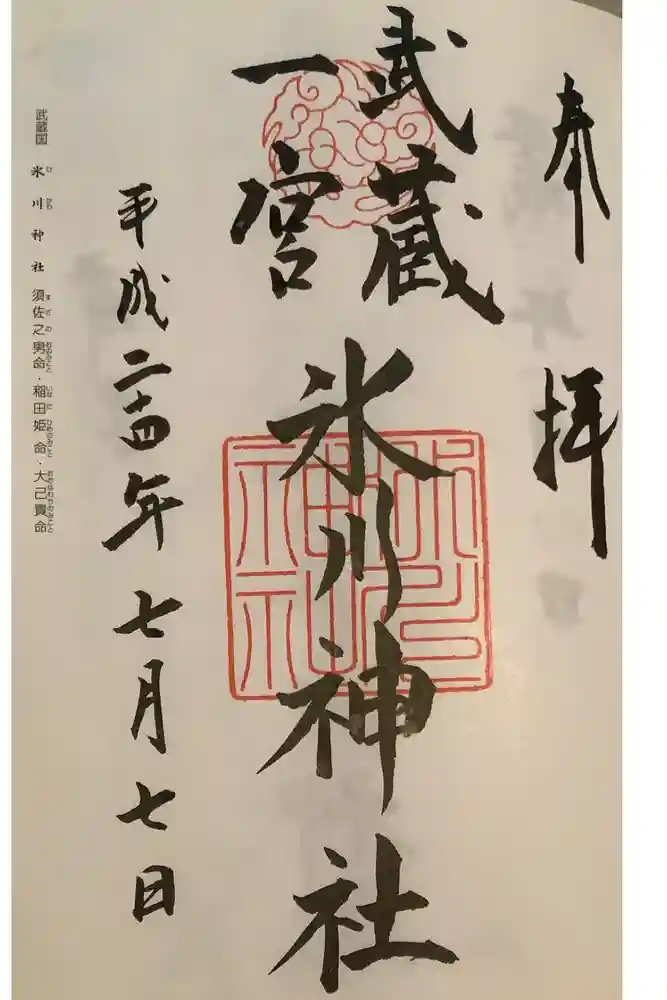 奉拝
武蔵
一宮
氷川神社
氷川神社
平成二十四年七月七日
武蔵国 氷川神社 須佐之男命・稲田姫命・大己貴命